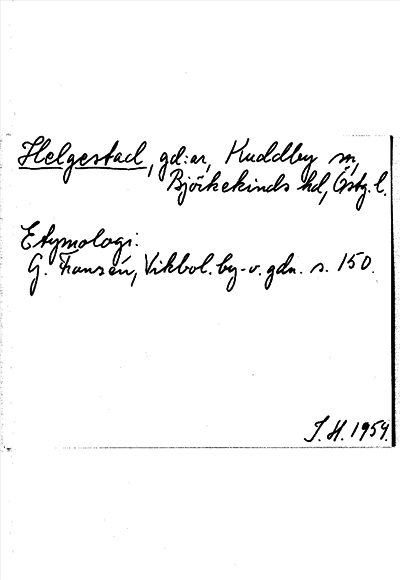 Helgestad, gd:ar, Kuddby sn,
Björkekinds hd, Östg. l.
Etymologi:
G. Franzén, Vikbol. by- o. gdn. s. 150.
I. H. 1959.